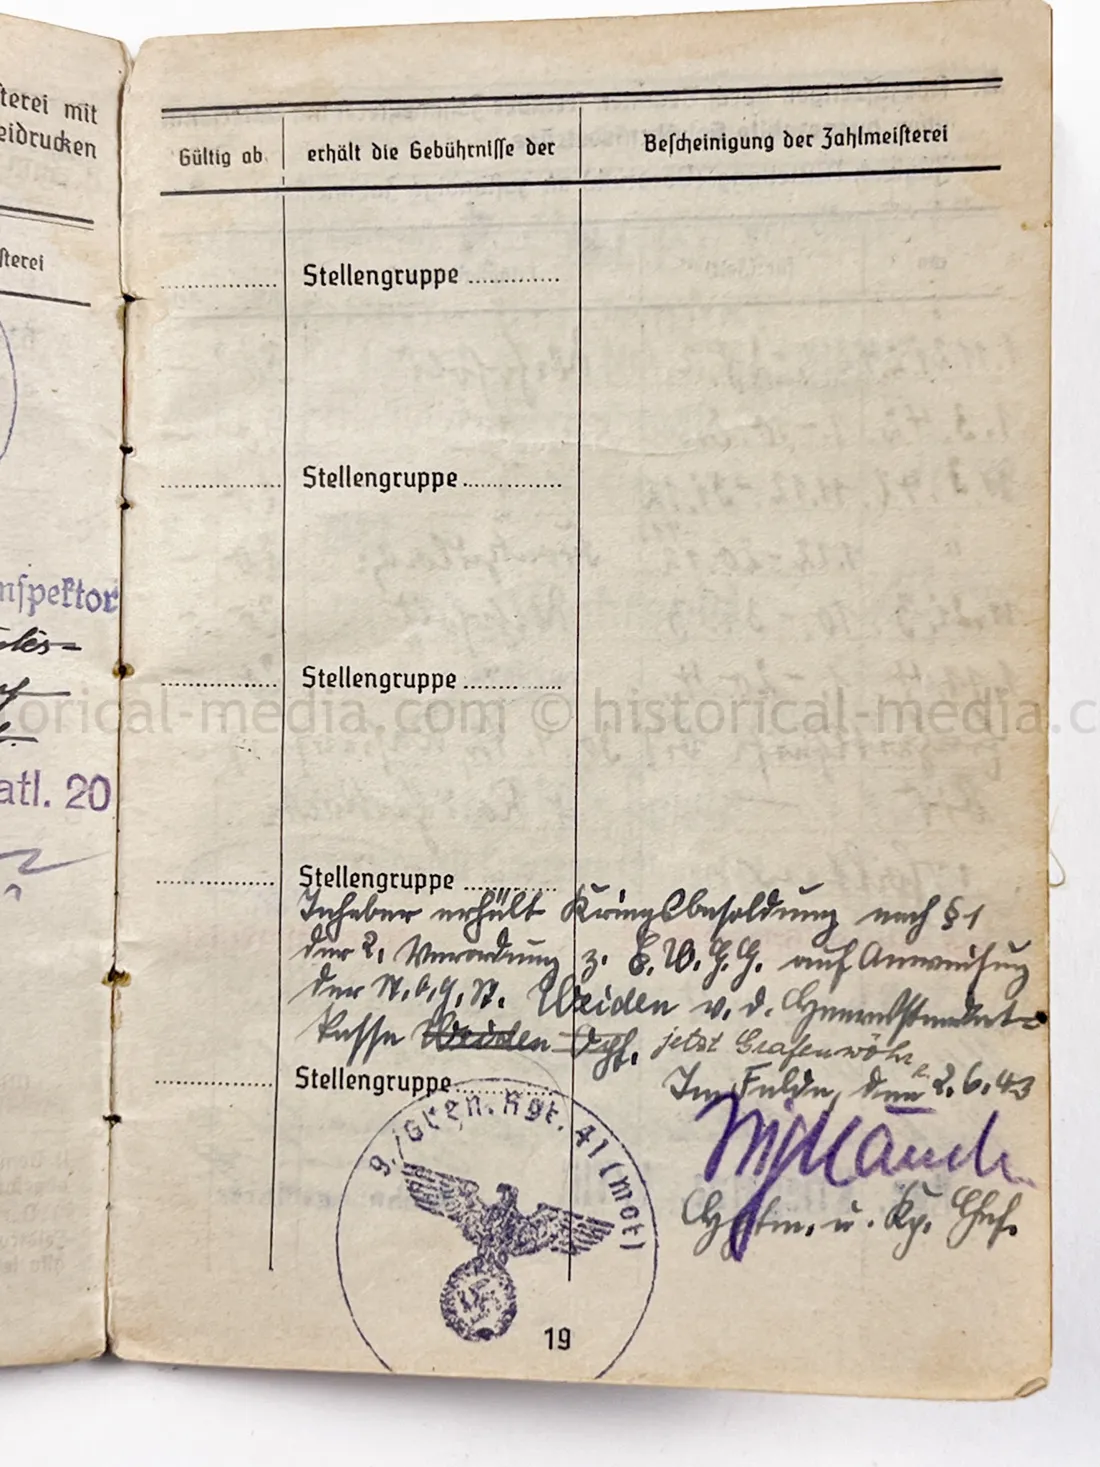 terei mit
eidrucken
sterei
nspektor
atl. 20
Gültig ab
erhält die Gebührnisse der
Bescheinigung der Zahlmeisterei
Stellengruppe
Stellengruppe
Stellengruppe
orical-media.com © historical-media.c
Stellengruppe
Inhaber erhält Kriegsbesoldung nach § 1
der 2. Verordnung z. E.W.G.G. auf Anweisung
der St. Weiden v. d. Heeresstandort-
kasse Weiden Opf. jetzt Grafenwöhr
Stellengruppe
Im Felde, den 2.6.43
9./Gren. Rgt. 41 (mot)
Hptm. u. Kp. Chef.
19